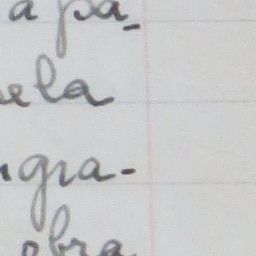 a pa-
ela
gra-
obra